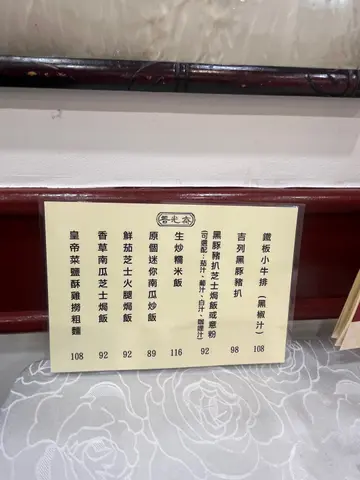 鐵板小牛排（黑椒汁） 108
吉列黑豚豬扒 98
黑豚豬扒芝士焗飯或意粉
（可選配：茄汁、葡汁、白汁、咖喱汁） 92
生炒糯米飯 116
原個迷你南瓜炒飯 89
鮮茄芝士火腿焗飯 92
香草南瓜芝士焗飯 92
皇帝菜鹽酥雞撈粗麵 108